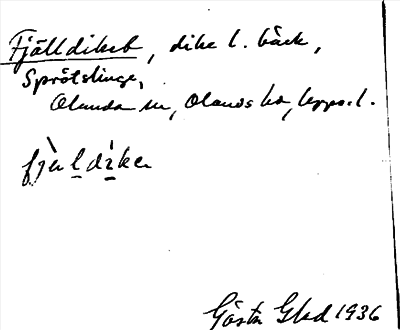 Fjälldiket, dike l. bäck,
Sprötslinge,
Olands hd, Upps. l.
fjäldiken
Gösta Glad 1936